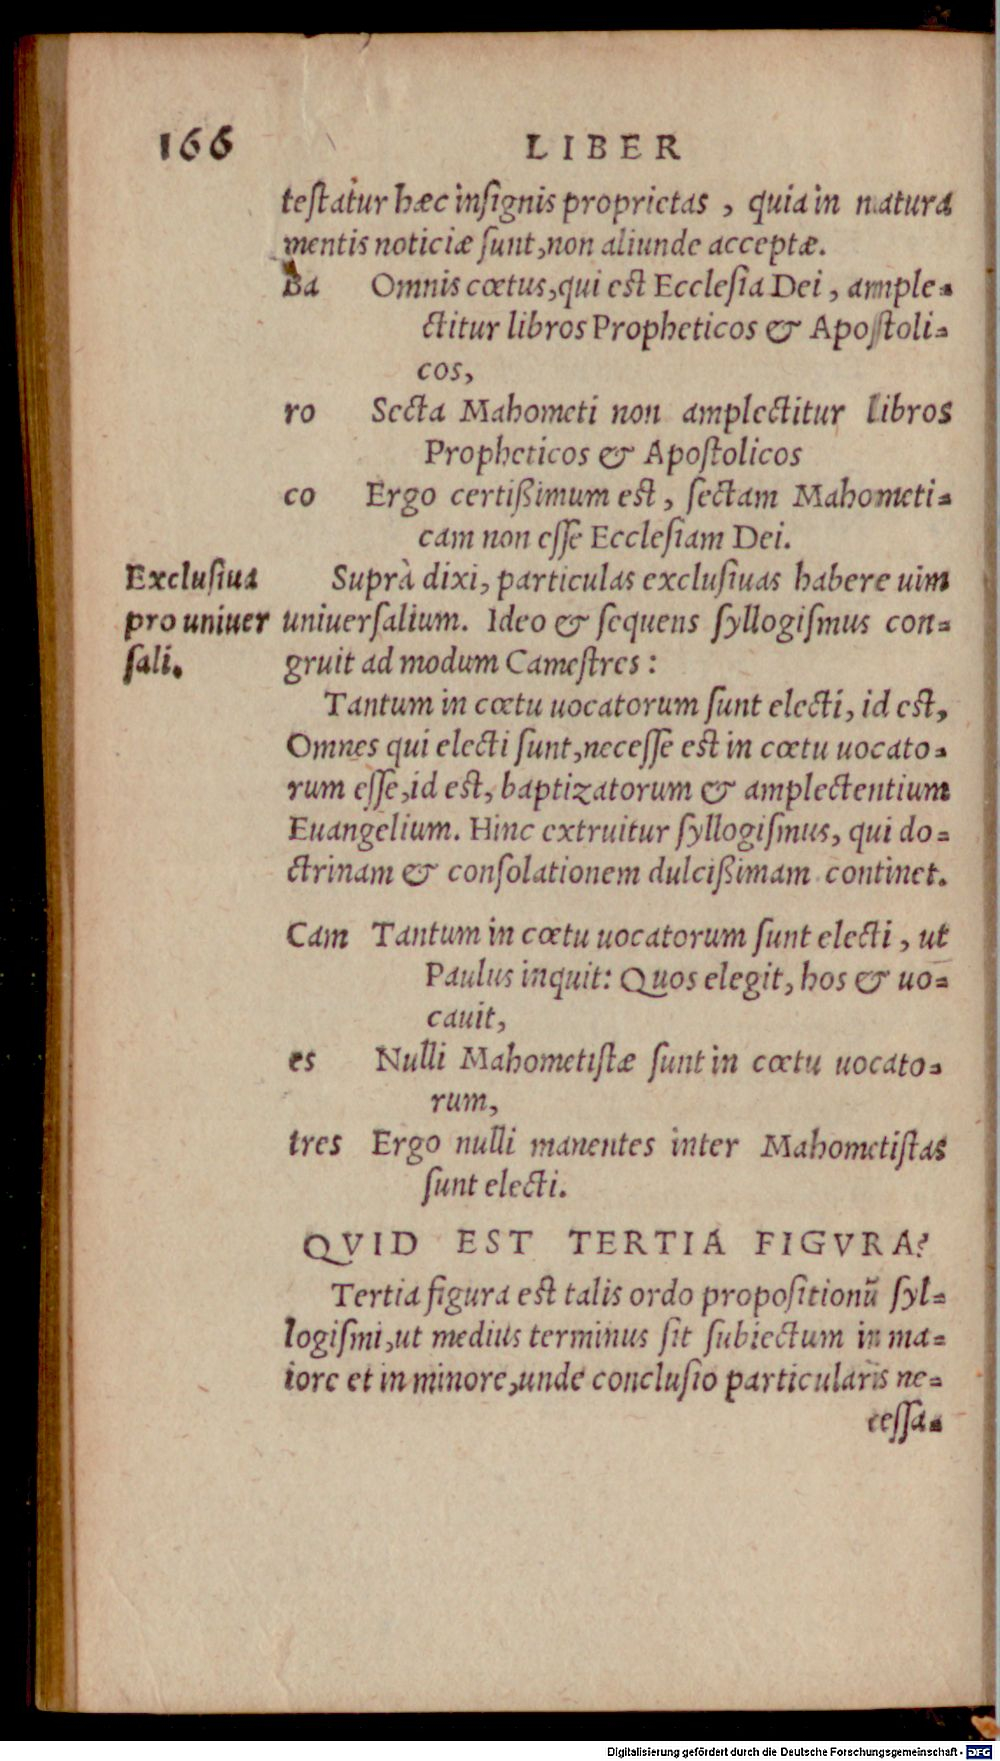 166 LIBER
testatur hæc insignis proprietas, quia in natura
mentis noticiæ sunt, non aliunde acceptæ.
Ba Omnis cœtus, qui est Ecclesia Dei, ample-
ctitur libros Propheticos & Apostoli-
cos,
ro Secta Mahometi non amplectitur libros
Propheticos & Apostolicos
co Ergo certißimum est, sectam Mahometi-
cam non esse Ecclesiam Dei.
Exclusiua
pro uniuer
sali.
Suprà dixi, particulas exclusiuas habere uim
uniuersalium. Ideo & sequens syllogismus con-
gruit ad modum Camestres:
Tantum in cœtu uocatorum sunt electi, id est,
Omnes qui electi sunt, necesse est in cœtu uocato-
rum esse, id est, baptizatorum & amplectentium
Euangelium. Hinc extruitur syllogismus, qui do-
ctrinam & consolationem dulcißimam continet.
Cam Tantum in cœtu uocatorum sunt electi, ut
Paulus inquit: Quos elegit, hos & uo-
cauit,
es Nulli Mahometistæ sunt in cœtu uocato-
rum,
tres Ergo nulli manentes inter Mahometistas
sunt electi.
QVID EST TERTIA FIGVRA?
Tertia figura est talis ordo propositionũ syl-
logismi, ut medius terminus sit subiectum in ma-
iore et in minore, unde conclusio particularis ne-
cessa-
Digitalisierung gefördert durch die Deutsche Forschungsgemeinschaft - DFG